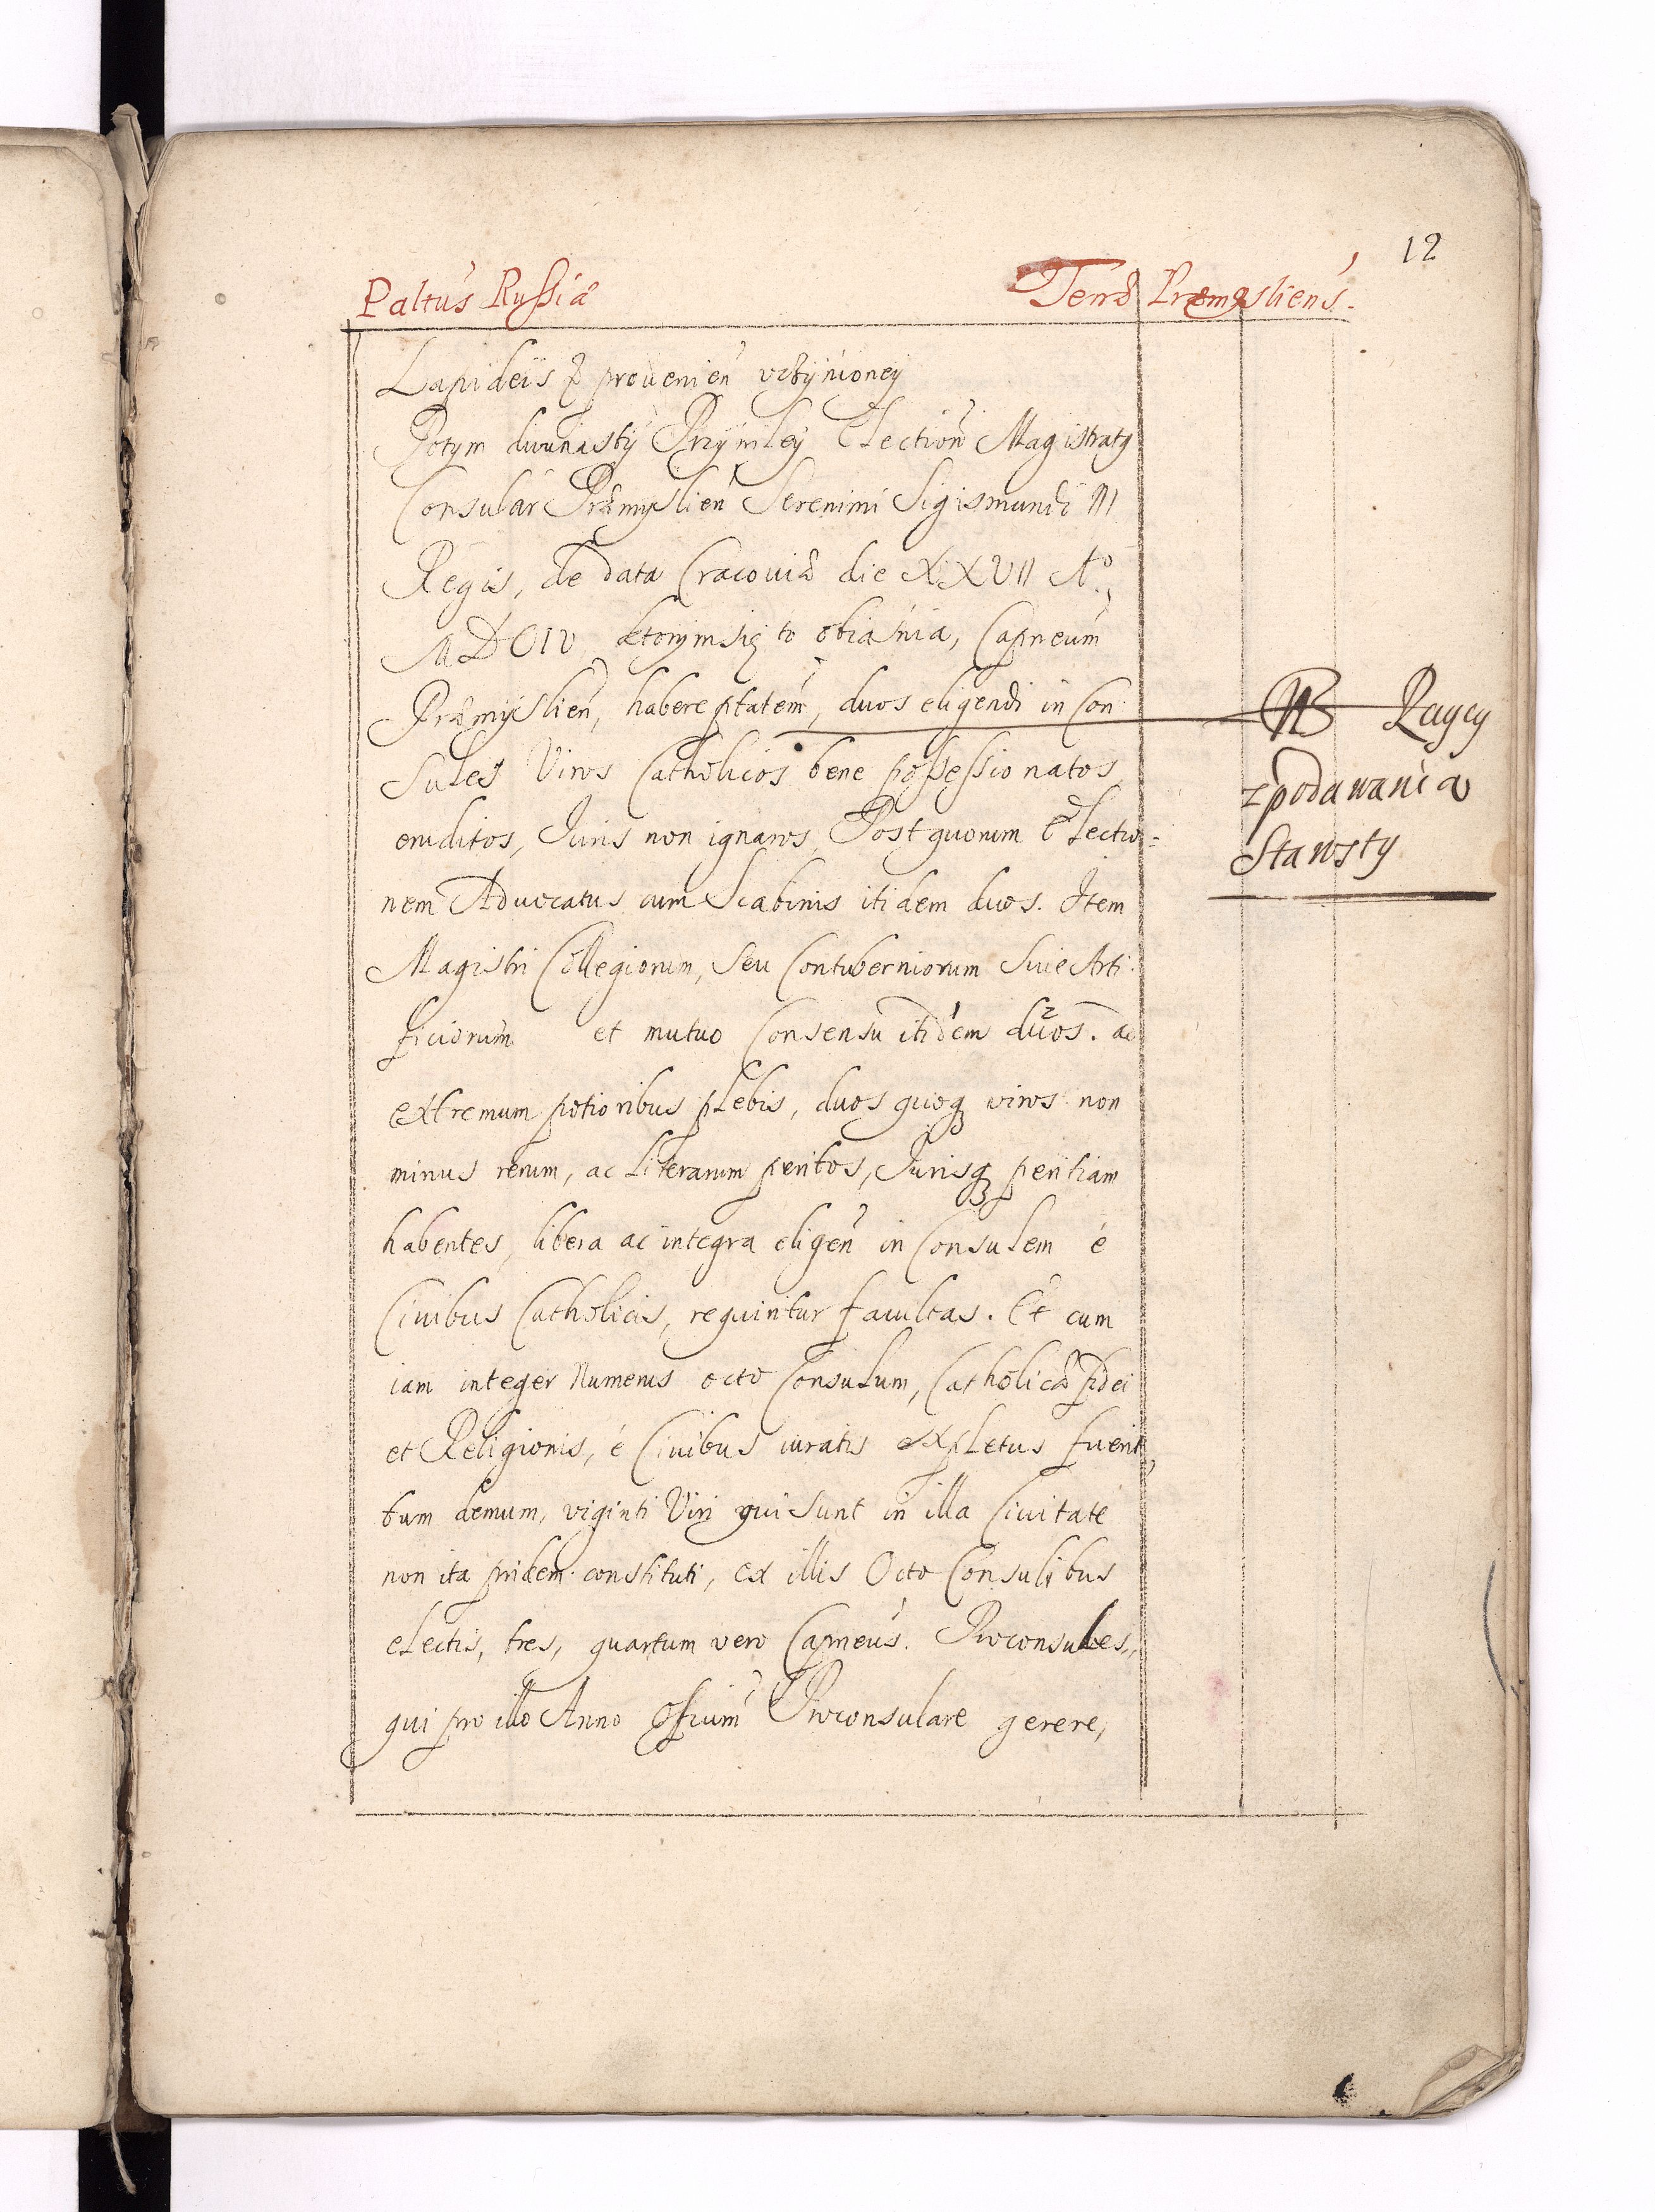 12
Paltus Russiæ Terræ Præmysliens.
Lapideis & provenien vczynioney
Potym dwunasty Przywiley Election Magistratq
Consular Præmyslien Serenimi Sigismundi III
Regis, de data Cracoviæ die XXVII Aº.
MDCIV, ktorym się to obiasnia, Capneum
Præmyslien, habere ptatem, duos eligendi in Con
sules Viros Catholicos bene possessionatos,
eruditos, Iuris non ignaros, Post quorum Electio=
nem Advocatus cum Scabinis itidem duos. Item
Magistri Collegiorum, seu Contuberniorum Sive Arti
ficiorum et mutuo Consensu itidem duos. ad
extremum potioribus plebis, duos quoq viros non
minus rerum, ac literarum peritos, Jurisq peritiam
habentes, libera ac integra eligen in Consulem è
Civibus Catholicis, requiritur facultas. Et cum
iam integer Numerus octo Consulum, Catholicæ fidei
et Religionis, è Civibus iuratis expletus fuerit,
tum demum, viginti Viri qui Sunt in illa Civitate
non ita pridem constituti, ex illis Octo Consulibus
electis, tres, quartum vero Capneus. Proconsules,
qui pro illo Anno Officium Proconsulare gerere,
NB Raycy
z podawania
Starosty